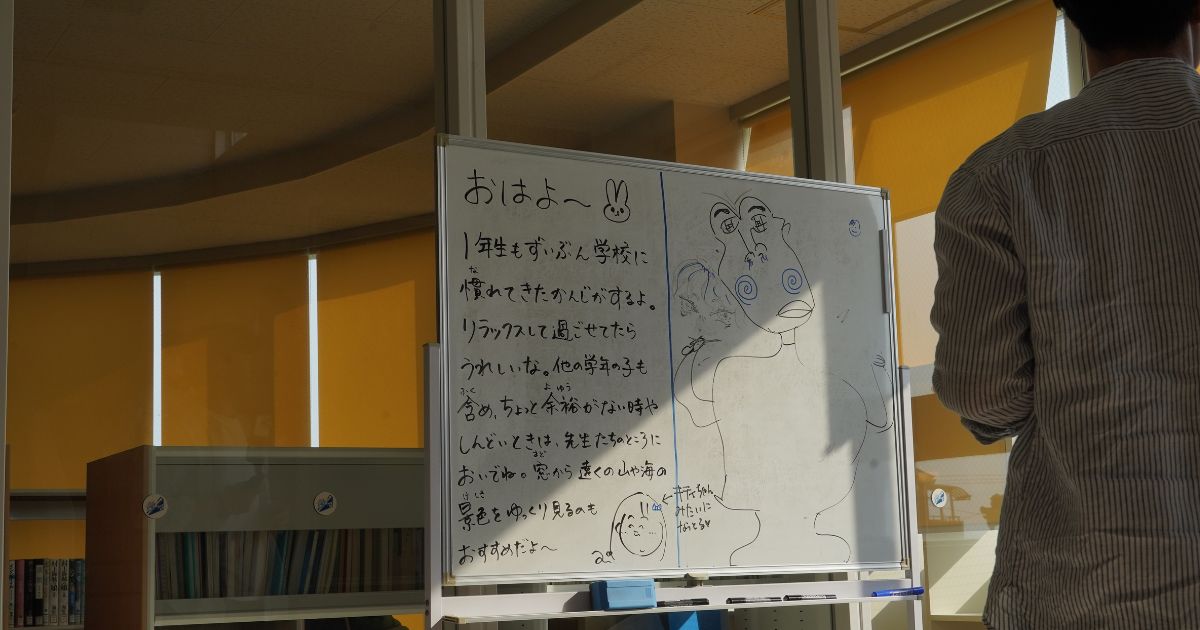 おはよ〜
1年生もずいぶん学校に
な
慣れてきたかんじがするよ。
リラックスして過ごせてたら
うれしいな。他の学年の子も
ふく よゆう
含め、ちょっと余裕がない時や
しんどいときは、先生たちのところに
まど
おいでね。窓から遠くの山や海の
けしき
景色をゆっくり見るのも
おすすめだよ〜
←キティちゃん
みたいに
なっとる